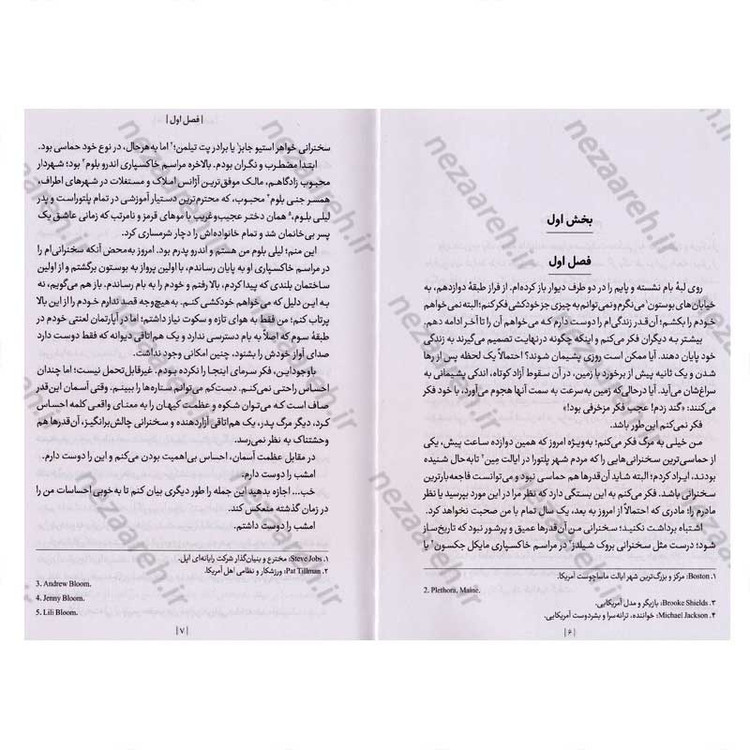 بخش اول
فصل اول
روی لبهٔ بام نشسته و پایم را در دو طرف دیوار باز کرده‌ام. از فراز طبقهٔ دوازدهم، به
خیابان‌های بوستون¹ می‌نگرم و نمی‌توانم به چیزی جز خودکشی فکر کنم؛ البته نمی‌خواهم
خودم را بکشم؛ آن‌قدر زندگی‌ام را دوست دارم که می‌خواهم آن را تا آخر ادامه دهم.
بیشتر به دیگران فکر می‌کنم و اینکه چگونه درنهایت تصمیم می‌گیرند به زندگی
خود پایان دهند. آیا ممکن است روزی پشیمان شوند؟ احتمالاً یک لحظه پس از رها
شدن و یک ثانیه پیش از برخورد با زمین، در آن سقوط آزاد کوتاه، اندکی پشیمانی به
سراغ‌شان می‌آید. آیا درحالی‌که زمین به‌سرعت به سمت آنها هجوم می‌آورد، با خود فکر
می‌کنند: «گند زدم! عجب فکر مزخرفی بود!»
فکر نمی‌کنم این‌طور باشد.
من خیلی به مرگ فکر می‌کنم؛ به‌ویژه امروز که همین دوازده ساعت پیش، یکی
از حماسی‌ترین سخنرانی‌هایی را که مردم شهر پلتورا در ایالت مِین² تابه‌حال شنیده
بودند، ایراد کردم؛ البته شاید آن‌قدرها هم حماسی نبود و می‌توانست فاجعه‌بارترین
سخنرانی باشد. فکر می‌کنم به این بستگی دارد که نظر مرا در این مورد بپرسید یا نظر
مادرم را؛ مادری که احتمالاً از امروز به بعد، یک سال تمام با من صحبت نخواهد کرد.
اشتباه برداشت نکنید؛ سخنرانی من آن‌قدرها عمیق و پرشور نبود که تاریخ‌ساز
شود؛ درست مثل سخنرانی بروک شیلدز³ در مراسم خاکسپاری مایکل جکسون⁴ یا
۱. Boston: مرکز و بزرگ‌ترین شهر ایالت ماساچوست آمریکا.
2. Plethora, Maine.
۳. Brooke Shields: بازیگر و مدل آمریکایی.
۴. Michael Jackson: خواننده، ترانه‌سرا و بشردوست آمریکایی.
| ۶ |
| فصل اول |
سخنرانی خواهر استیو جابز¹ یا برادر پت تیلمن؛² اما به هرحال، در نوع خود حماسی بود.
ابتدا مضطرب و نگران بودم. بالاخره مراسم خاکسپاری اندرو بلوم³ بود؛ شهردار
محبوب زادگاهم، مالک موفق‌ترین آژانس املاک و مستغلات در شهرهای اطراف،
همسر جنی بلوم⁴ محبوب، که محترم‌ترین دستیار آموزشی در تمام پلتوراست و پدر
لیلی بلوم،⁵ همان دختر عجیب‌وغریب با موهای قرمز و نامرتب که زمانی عاشق یک
پسر بی‌خانمان شد و تمام خانواده‌اش را دچار شرمساری کرد.
این منم؛ لیلی بلوم من هستم و اندرو پدرم بود. امروز به‌محض آنکه سخنرانی‌ام را
در مراسم خاکسپاری او به پایان رساندم، با اولین پرواز به بوستون برگشتم و از اولین
ساختمان بلندی که پیدا کردم، بالا رفتم و خودم را به بام رساندم. باز هم می‌گویم، نه
به این دلیل که می‌خواهم خودکشی کنم. به هیچ‌وجه قصد ندارم خودم را از این بالا
پرتاب کنم؛ من فقط به هوای تازه و سکوت نیاز داشتم؛ اما در آپارتمان لعنتی خودم در
طبقهٔ سوم که اصلاً به بام دسترسی ندارد و یک هم‌اتاقی دیوانه که فقط دوست دارد
صدای آواز خودش را بشنود، چنین امکانی وجود نداشت.
باوجوداین، فکر سرمای اینجا را نکرده بودم. غیرقابل‌تحمل نیست؛ اما چندان
احساس راحتی نمی‌کنم. دست‌کم می‌توانم ستاره‌ها را ببینم. وقتی آسمان این‌قدر
صاف است که می‌توان شکوه و عظمت کیهان را به معنای واقعی کلمه احساس
کرد، دیگر مرگ پدر، یک هم‌اتاقی آزاردهنده و سخنرانی چالش‌برانگیز، آن‌قدرها هم
وحشتناک به نظر نمی‌رسد.
در مقابل عظمت آسمان، احساس بی‌اهمیت بودن می‌کنم و این را دوست دارم.
امشب را دوست دارم.
خب... اجازه بدهید این جمله را طور دیگری بیان کنم تا به‌خوبی احساسات من را
در زمان گذشته منعکس کند.
امشب را دوست داشتم.
۱. Steve Jobs: مخترع و بنیان‌گذار شرکت رایانه‌ای اپل.
۲. Pat Tillman: ورزشکار و نظامی اهل آمریکا.
3. Andrew Bloom.
4. Jenny Bloom.
5. Lili Bloom.
| ۷ |
nezaareh.ir